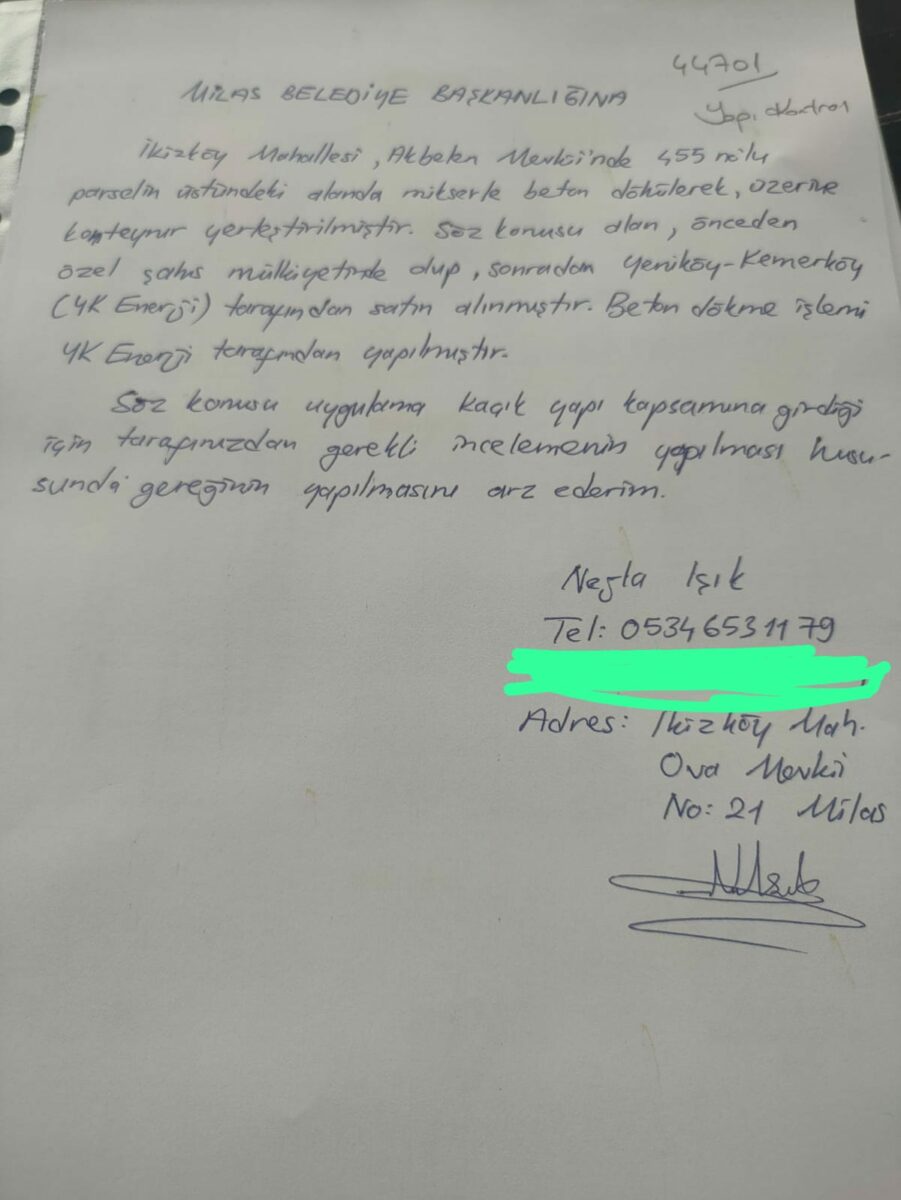 44701
Yapı Kontrol
MİLAS BELEDİYE BAŞKANLIĞINA
İkizköy Mahallesi, Akbelen Mevkii'nde 455 no'lu
parselin üstündeki alanda mikserle beton dökülerek, üzerine
konteynır yerleştirilmiştir. Söz konusu alan, önceden
özel şahıs mülkiyetinde olup, sonradan Yeniköy-Kemerköy
(YK Enerji) tarafından satın alınmıştır. Beton dökme işlemi
YK Enerji tarafından yapılmıştır.
Söz konusu uygulama kaçak yapı kapsamına girdiği
için tarafınızdan gerekli incelemenin yapılması husu-
sunda gereğinin yapılmasını arz ederim.
Nejla Işık
Tel: 0534 653 11 79
Adres: İkizköy Mah.
Ova Mevkii
No: 21 Milas